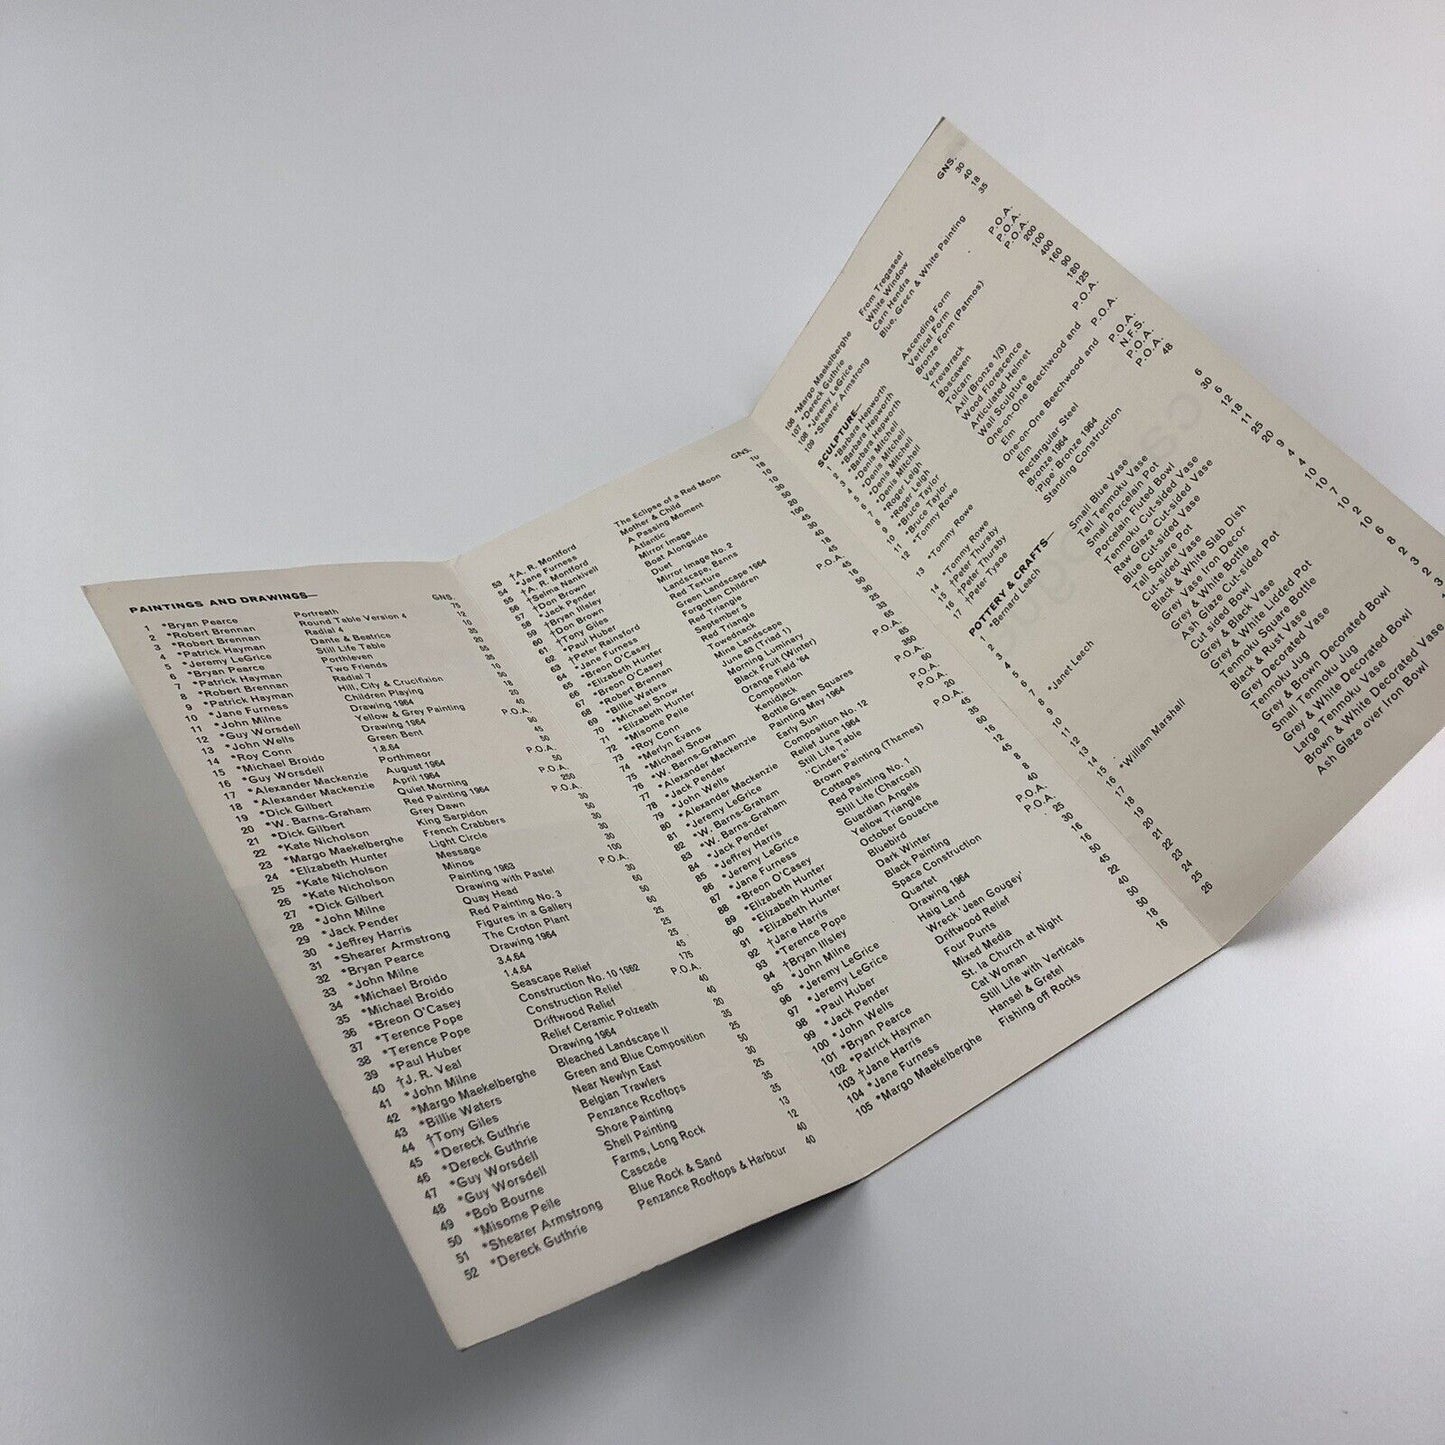 PAINTINGS AND DRAWINGS— GNS.
1 *Bryan Pearce Portreath 75
2 *Robert Brennan Round Table Version 4 12
3 *Robert Brennan Radial 4 10
4 *Patrick Hayman Dante & Beatrice 35
5 *Jeremy LeGrice Still Life Table
6 *Bryan Pearce Porthleven
7 *Patrick Hayman Two Friends
8 *Robert Brennan Radial 7
9 *Patrick Hayman Hill, City & Crucifixion
10 *Jane Furness Children Playing
11 *John Milne Drawing 1964
12 *Guy Worsdell Yellow & Grey Painting
13 *John Wells Drawing 1964 P.O.A.
14 *Roy Conn Green Bent
15 *Michael Broido 1.8.64
16 *Guy Worsdell Porthmeor
17 *Alexander Mackenzie August 1964
18 *Alexander Mackenzie April 1964
19 *Dick Gilbert Quiet Morning
20 *W. Barns-Graham Red Painting 1964
21 *Dick Gilbert Grey Dawn
22 *Kate Nicholson King Sarpidon
23 *Margo Maekelberghe French Crabbers
24 *Elizabeth Hunter Light Circle
25 *Kate Nicholson Message
26 *Kate Nicholson Minos
27 *Dick Gilbert Painting 1963
28 *John Milne Drawing with Pastel
29 *Jack Pender Quay Head
30 *Jeffrey Harris Red Painting No. 3
31 *Shearer Armstrong Figures in a Gallery
32 *Bryan Pearce The Croton Plant
33 *John Milne Drawing 1964
34 *Michael Broido 3.4.64
35 *Michael Broido 1.4.64
36 *Breon O'Casey Seascape Relief 45
37 *Terence Pope Construction No. 10 1962 175
38 *Terence Pope Construction Relief P.O.A.
39 *Paul Huber Driftwood Relief 40
40 †J. R. Veal Relief Ceramic Polzeath 40
41 *John Milne Drawing 1964 20
42 *Margo Maekelberghe Bleached Landscape II 35
43 *Billie Waters Green and Blue Composition 25
44 †Tony Giles Near Newlyn East 50
45 *Dereck Guthrie Belgian Trawlers 30
46 *Dereck Guthrie Penzance Rooftops 25
47 *Guy Worsdell Shore Painting 35
48 *Guy Worsdell Shell Painting 35
49 *Bob Bourne Farms, Long Rock 13
50 *Misome Peile Cascade 12
51 *Shearer Armstrong Blue Rock & Sand 40
52 *Dereck Guthrie Penzance Rooftops & Harbour 40
GNS.
53 †A. R. Montford The Eclipse of a Red Moon 10
54 *Jane Furness Mother & Child 18
55 †A. R. Montford A Passing Moment 10
56 †Selma Nankivell Atlantic 10
57 †Don Brown Mirror Image 30
58 *Jack Pender Boat Alongside 50
59 †Bryan Illsley Duet 20
60 †Don Brown Mirror Image No. 2 100
61 †Tony Giles Landscape, Banns 45
62 *Paul Huber Red Texture 30
63 †Peter Ransford Green Landscape 1964 40
64 *Jane Furness Forgotten Children 18
65 *Breon O'Casey Red Triangle 45
66 *Elizabeth Hunter September 5 P.O.A.
67 *Breon O'Casey Red Triangle 45
68 *Robert Brennan Towednack
69 *Billie Waters Mine Landscape
70 *Michael Snow June 63 (Triad 1)
71 *Elizabeth Hunter Morning Luminary
72 *Misome Peile Black Fruit (Winter)
73 *Roy Conn Orange Field '64
74 *Merlyn Evans Composition
75 *Michael Snow Kenidjack
76 *W. Barns-Graham Bottle Green Squares
77 *Alexander Mackenzie Painting May 1964
78 *Jack Pender Early Sun
79 *John Wells Composition No. 12
80 *Alexander Mackenzie Relief June 1964
81 *Jeremy LeGrice Still Life Table
82 *W. Barns-Graham "Cinders"
83 *W. Barns-Graham Brown Painting (Thames)
84 *Jack Pender Cottages
85 *Jeffrey Harris Red Painting No. 1
86 *Jeremy LeGrice Still Life (Charcoal)
87 *Jane Furness Guardian Angels
88 *Breon O'Casey Yellow Triangle
89 *Elizabeth Hunter October Gouache
90 *Elizabeth Hunter Bluebird
91 *Elizabeth Hunter Dark Winter
92 †Jane Harris Black Painting
93 *Terence Pope Space Construction
94 †Bryan Illsley Quartet
95 *John Milne Drawing 1964
96 *Jeremy LeGrice Haig Land
97 *Jeremy LeGrice Wreck 'Jean Gougey'
98 *Paul Huber Driftwood Relief
99 *Jack Pender Four Punts
100 *John Wells Mixed Media
101 *Bryan Pearce St. Ia Church at Night
102 *Patrick Hayman Cat Woman
103 †Jane Harris Still Life with Verticals 50
104 *Jane Furness Hansel & Gretel 18
105 *Margo Maekelberghe Fishing off Rocks 16
GNS.
106 *Margo Maekelberghe From Tregaseal 30
107 *Dereck Guthrie White Window 40
108 *Jeremy LeGrice Carn Hendra 18
109 *Shearer Armstrong Blue, Green & White Painting 35
SCULPTURE—
1 *Barbara Hepworth Ascending Form P.O.A.
2 *Barbara Hepworth Vertical Form P.O.A.
3 *Barbara Hepworth Bronze Form (Patmos) P.O.A.
4 *Denis Mitchell Vexa 200
5 *Denis Mitchell Trevarrack 100
6 *Denis Mitchell Boscawen 400
7 *Roger Leigh Tolcarn 160
8 *Roger Leigh Axil (Bronze 1/3) 90
9 *Bruce Taylor Wood Florescence 180
10 *Bruce Taylor Articulated Helmet 125
11 *Tommy Rowe Wall Sculpture P.O.A.
12 *Tommy Rowe One-on-One Beechwood and
Elm P.O.A.
13 *Tommy Rowe One-on-One Beechwood and
Elm P.O.A.
14 †Peter Thursby Rectangular Steel N.F.S.
15 †Peter Thursby Bronze 1964 P.O.A.
16 'Pipe' Bronze 1964 P.O.A.
17 †Peter Tysoe Standing Construction 48
POTTERY & CRAFTS—
1 *Bernard Leach Small Blue Vase 6
2 Tall Tenmoku Vase 30
3 Small Porcelain Pot 6
4 Porcelain Fluted Bowl 12
5 Tenmoku Cut-sided Vase 18
6 Raw Glaze Cut-sided Vase 11
7 *Janet Leach Blue Cut-sided Vase 25
8 Tall Square Pot 20
9 Cut-sided Vase 9
10 Black & White Slab Dish 4
11 Grey Vase Iron Decor 4
12 Grey & White Bottle 10
13 Ash Glaze Cut-sided Pot 10
14 Cut sided Bowl
15 *William Marshall Grey & Black Vase
16 Grey & White Lidded Pot
17 Tenmoku Square Bottle
18 Black & Rust Vase
19 Grey Decorated Vase
20 Tenmoku Jug
21 Grey & Brown Decorated Bowl
22 Tenmoku Jug
23 Small White Decorated Bowl
24 Large Tenmoku Vase
25 Brown & White Decorated Vase
26 Ash Glaze over Iron Bowl